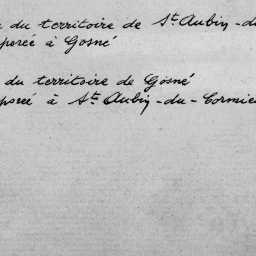 du territoire de St Aubin-du
à Gosné
du territoire de Gosné
à St Aubin-du-Cormie